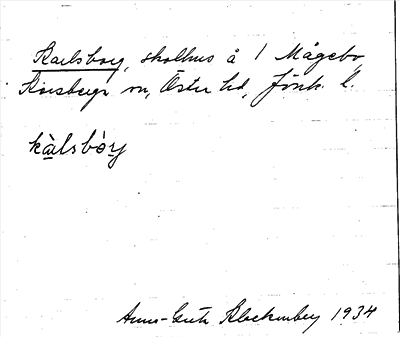 Karlsborg, skolhus å 1 Mågebo,
Korsberga sn, Östra hd, Jönk. l.
kàlsbòry
Anna-Greta Blockmberg 1934